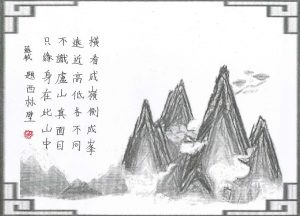 橫看成嶺側成峯
遠近高低各不同
不識盧山真面目
只緣身在此山中
蘇軾 題西林壁